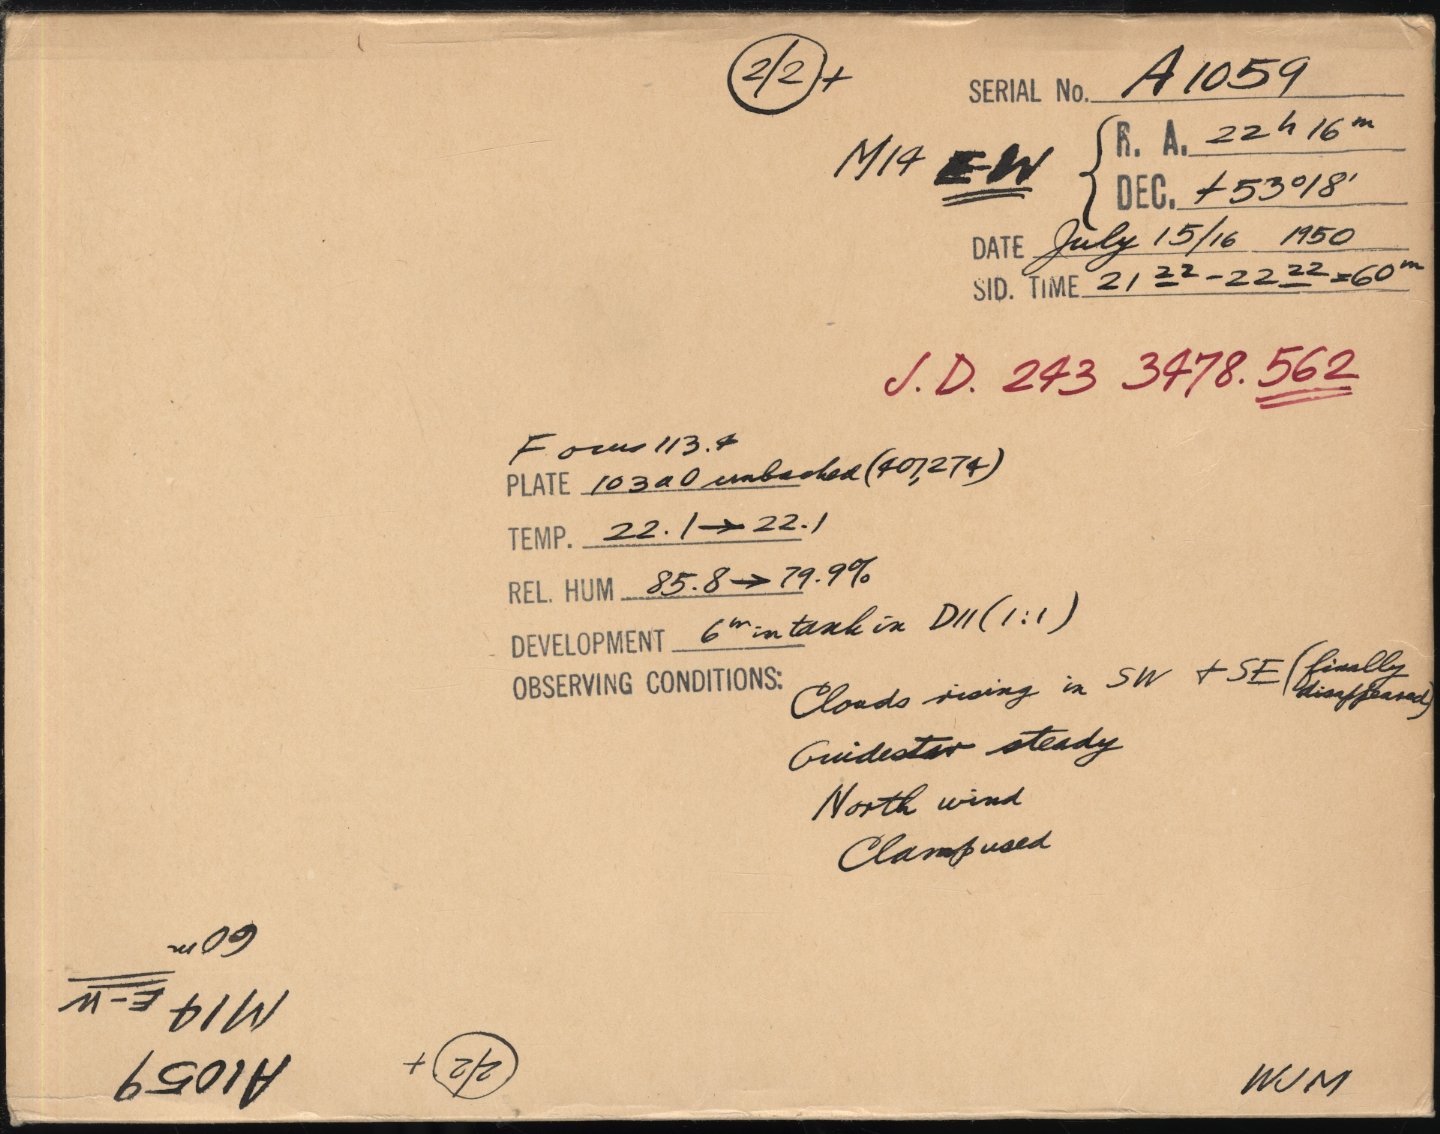 2/2 +
SERIAL No. A1059
M14 E-W
R. A. 22h 16m
DEC. +53°18'
DATE July 15/16 1950
SID. TIME 21 22 - 22 22 = 60m
J. D. 243 3478.562
Focus 113.4
PLATE 103a0 unbacked (407,274)
TEMP. 22.1 → 22.1
REL. HUM 85.8 → 79.9%
DEVELOPMENT 6m in tank in D11 (1:1)
OBSERVING CONDITIONS:
Clouds rising in SW + SE (finally
disappeared)
Guidestar steady
North wind
Clamp used
60m
M14 E-W
A1059
2/2 +
WJM